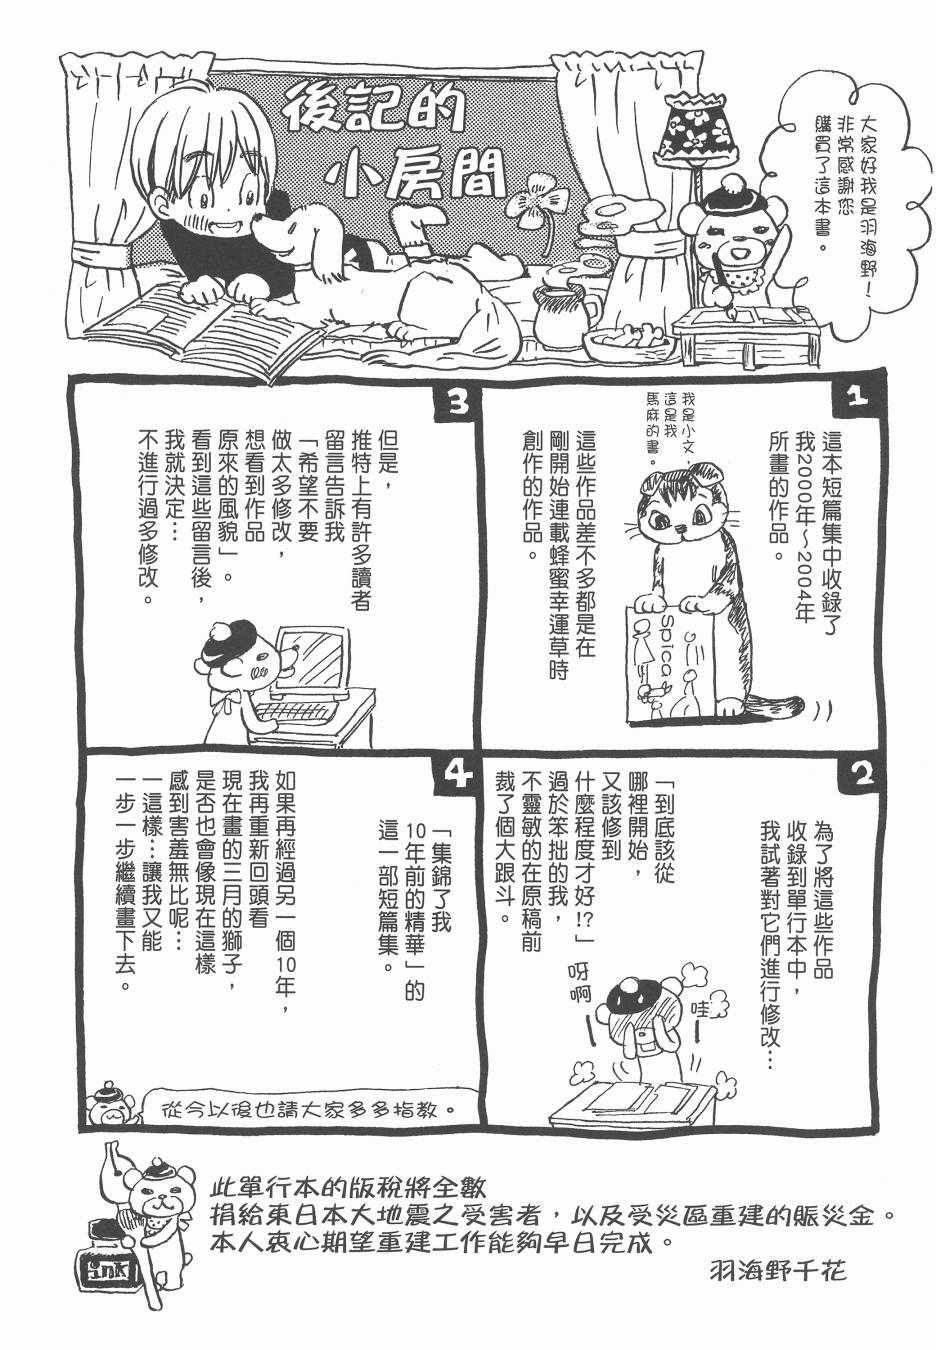 後記的
小房間
大家好我是羽海野！
非常感謝您
購買了這本書。
1
這本短篇集中收錄了
我2000年～2004年
所畫的作品。
我是小文，
這是我
馬麻的書。
Spica
這些作品差不多都是在
剛開始連載蜂蜜幸運草時
創作的作品。
2
為了將這些作品
收錄到單行本中，
我試著對它們進行修改…
「到底該從
哪裡開始，
又該修到
什麼程度才好!?」
過於笨拙的我，
不靈敏的在原稿前
栽了個大跟斗。
哇
呀啊
3
但是，
推特上有許多讀者
留言告訴我
「希望不要
做太多修改，
想看到作品
原來的風貌」。
看到這些留言後，
我就決定…
不進行過多修改。
4
「集錦了我
10年前的精華」的
這一部短篇集。
如果再經過另一個10年，
我再重新回頭看
現在畫的三月的獅子，
是否也會像現在這樣
感到害羞無比呢…
一這樣…讓我又能
一步一步繼續畫下去。
從今以後也請大家多多指教。
ink
此單行本的版稅將全數
捐給東日本大地震之受害者，以及受災區重建的賑災金。
本人衷心期望重建工作能夠早日完成。
羽海野千花